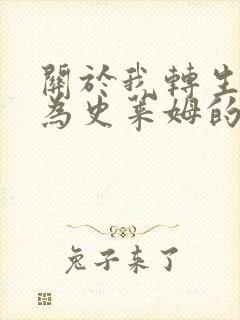 關於我轉生
為史萊姆的
兔子来了